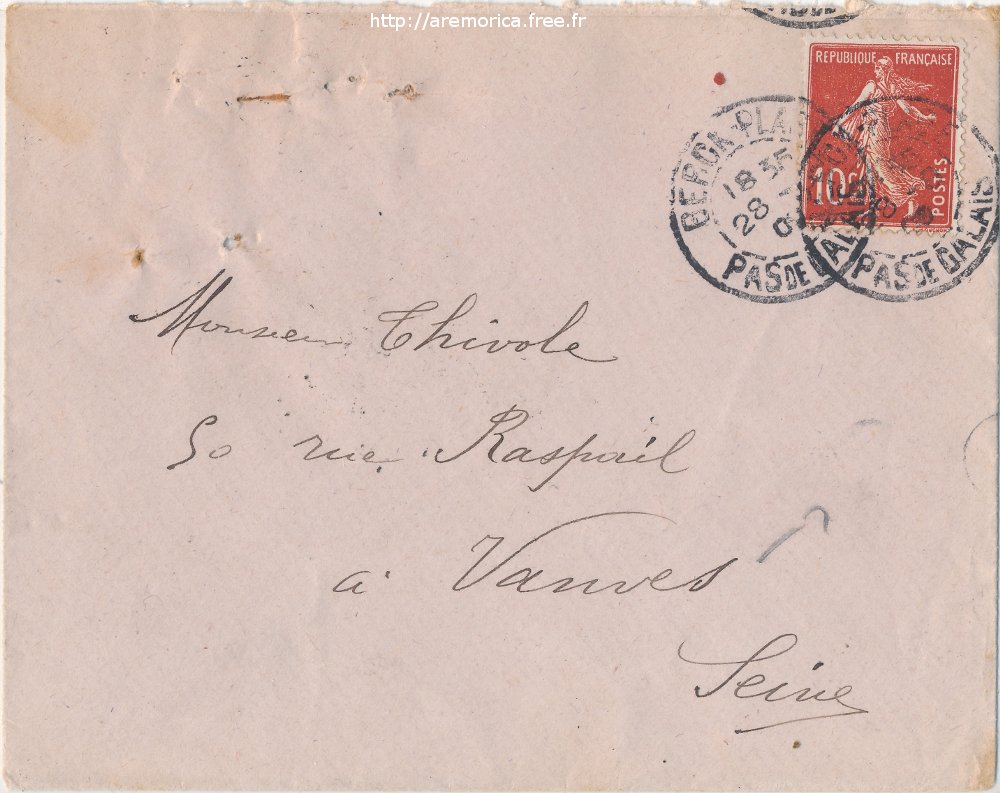 http://aremorica.free.fr
REPUBLIQUE FRANÇAISE
10c
POSTES
BERCK-PLAGE
18 35
28
PAS DE CALAIS
PAS DE CALAIS
Monsieur Thivole
50 rue Raspail
à Vanves
Seine